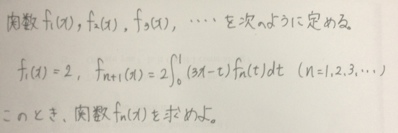 関数 f₁(x), f₂(x), f₃(x), ‥‥ を次のように定める。
f₁(x)=2, fₙ₊₁(x)=2∫₀¹(3x-t)fₙ(t)dt (n=1,2,3,…)
このとき、関数fₙ(x)を求めよ。